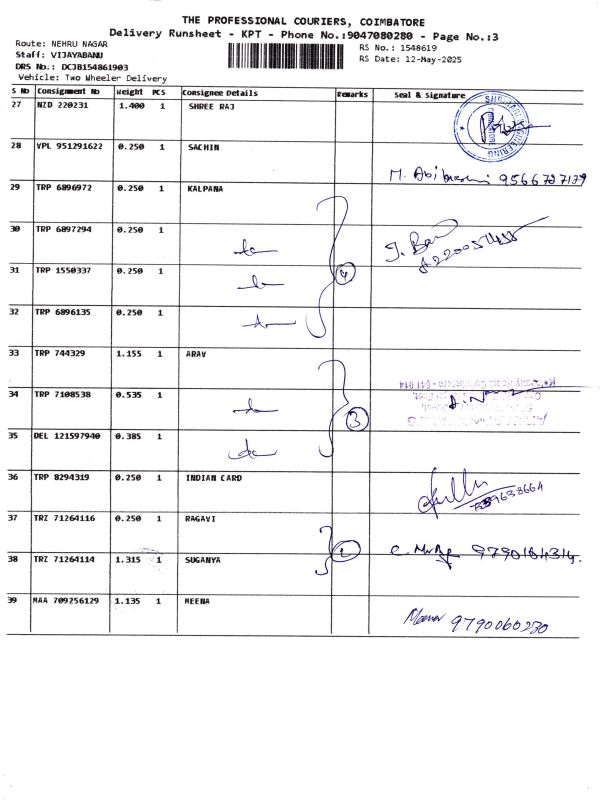 THE PROFESSIONAL COURIERS, COIMBATORE
Delivery Runsheet - KPT - Phone No.:9047080280 - Page No.:3
Route: NEHRU NAGAR
RS No.: 1548619
Staff: VIJAYABANU
RS Date: 12-May-2025
DRS No.: DCJB154861903
Vehicle: Two Wheeler Delivery
S No Consignment No Weight PCS Consignee Details Remarks Seal & Signature
27 NZD 220231 1.400 1 SHREE RAJ
28 VPL 951291622 0.250 1 SACHIN
9566727139
29 TRP 6896972 0.250 1 KALPANA
30 TRP 6897294 0.250 1
31 TRP 1550337 0.250 1 4
32 TRP 6896135 0.250 1
33 TRP 744329 1.155 1 ARAV
34 TRP 7108538 0.535 1
3
35 DEL 121597940 0.385 1
36 TRP 8294319 0.250 1 INDIAN CARD
37 TRZ 71264116 0.250 1 RAGAVI
9790184314.
38 TRZ 71264114 1.315 1 SUGANYA
39 MAA 709256129 1.135 1 MEENA
9790060230